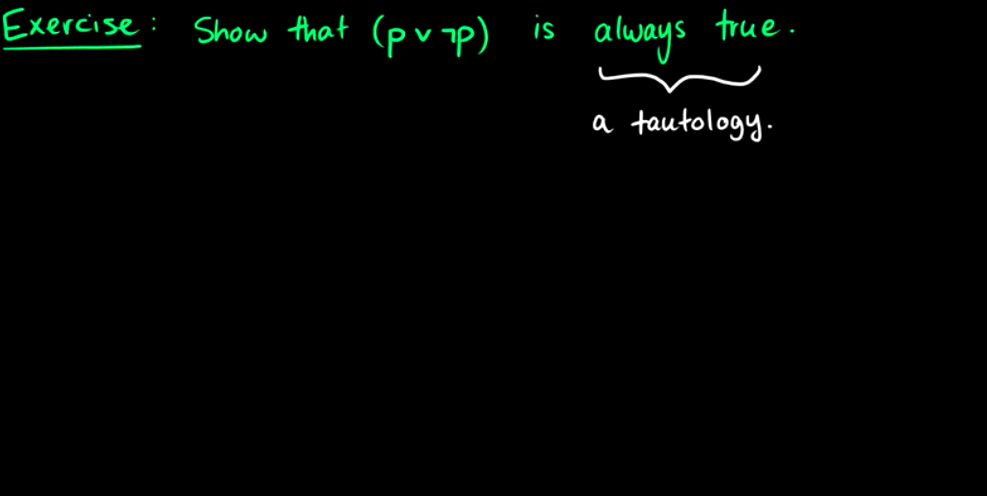 Exercise: Show that (p ∨ ¬p) is always true.
a tautology.